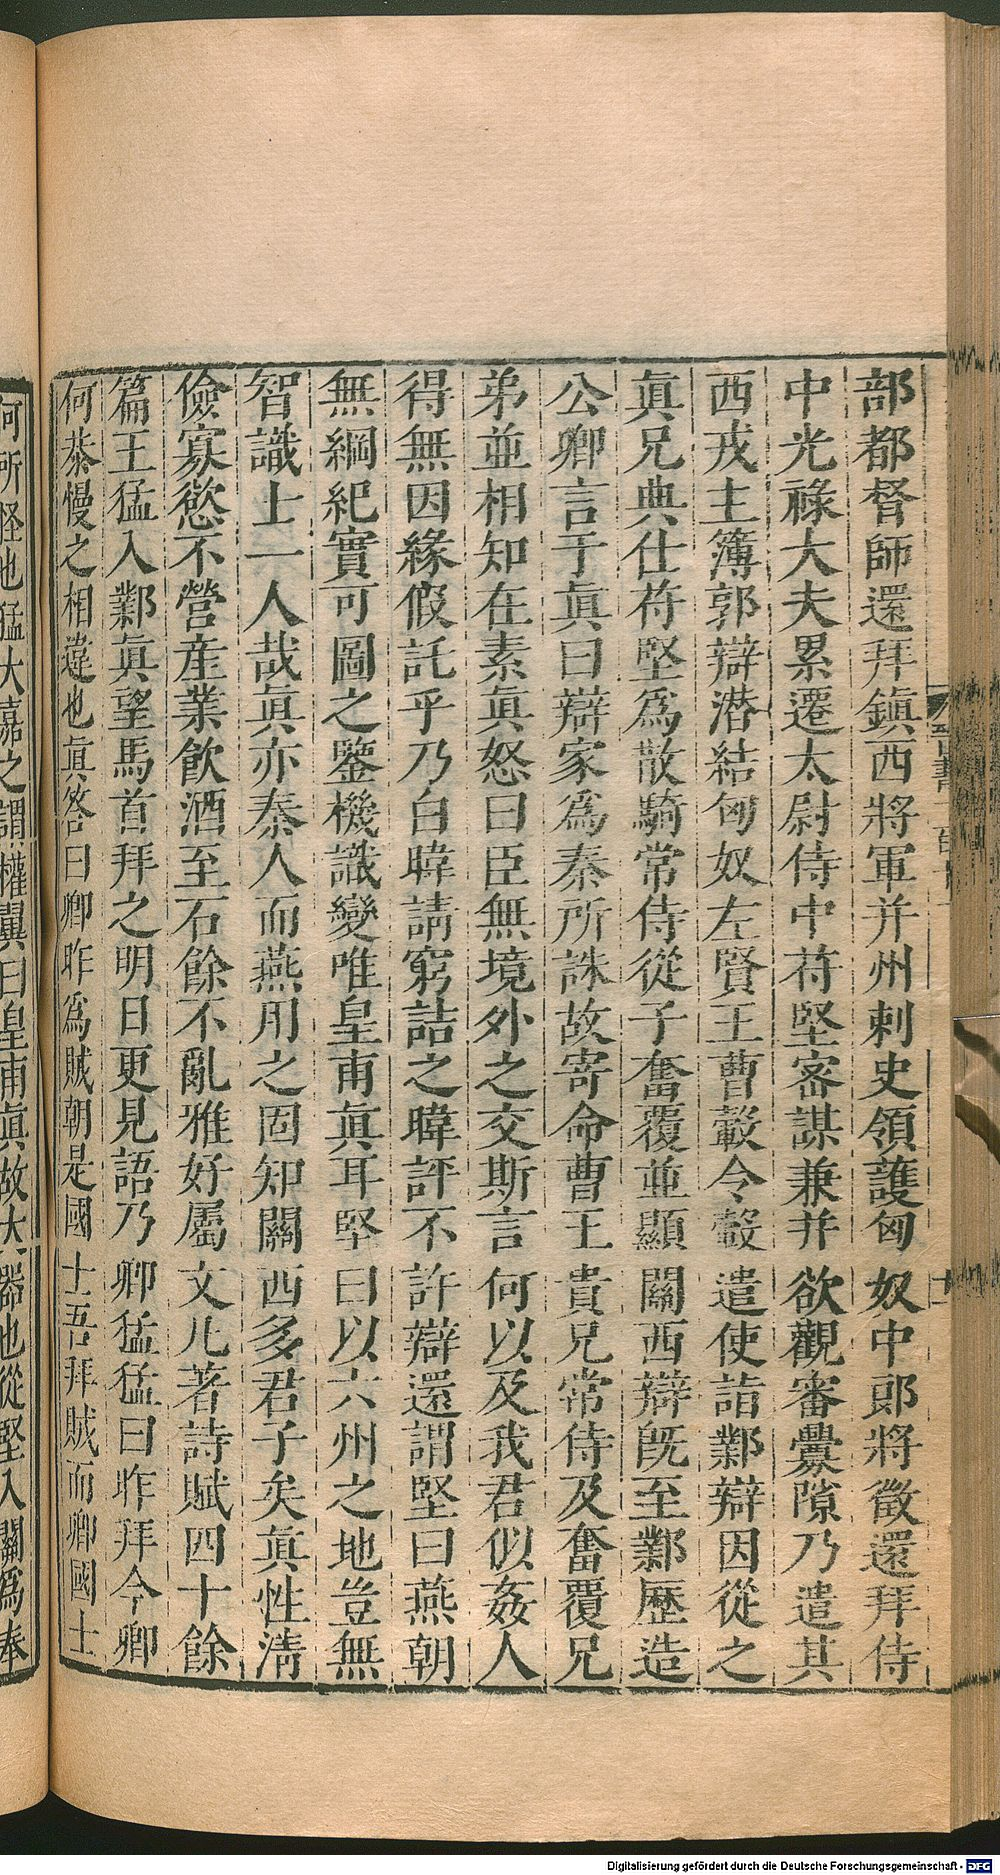 部都督師還拜鎮西將軍并州刺史領護匈奴中郎將徵還拜侍
中光祿大夫累遷太尉侍中苻堅密謀兼并欲觀審釁隙乃遣其
西戎主簿郭辯潜結匈奴左賢王曹轂令轂遣使詣鄴辯因從之
眞兄典仕苻堅爲散騎常侍從子奮覆並顯關西辯旣至鄴歷造
公卿言于眞曰辯家爲秦所誅故寄命曹王貴兄常侍及奮覆兄
弟並相知在素眞怒曰臣無境外之交斯言何以及我君似姦人
得無因緣假託乎乃白暐請窮詰之暐評不許辯還謂堅曰燕朝
無綱紀實可圖之鑒機識變唯皇甫眞耳堅曰以六州之地豈無
智識士一人哉眞亦秦人而燕用之固知關西多君子矣眞性淸
儉寡慾不營産業飮酒至石餘不亂雅好屬文凡著詩賦四十餘
篇王猛入鄴眞望馬首拜之明日更見語乃卿猛猛曰昨拜今卿
何恭慢之相違也眞答曰卿昨爲賊朝是國士吾拜賊而卿國士
何所怪也猛大嘉之謂權翼曰皇甫眞故大器也從堅入關爲奉
Digitalisierung gefördert durch die Deutsche Forschungsgemeinschaft - DFG